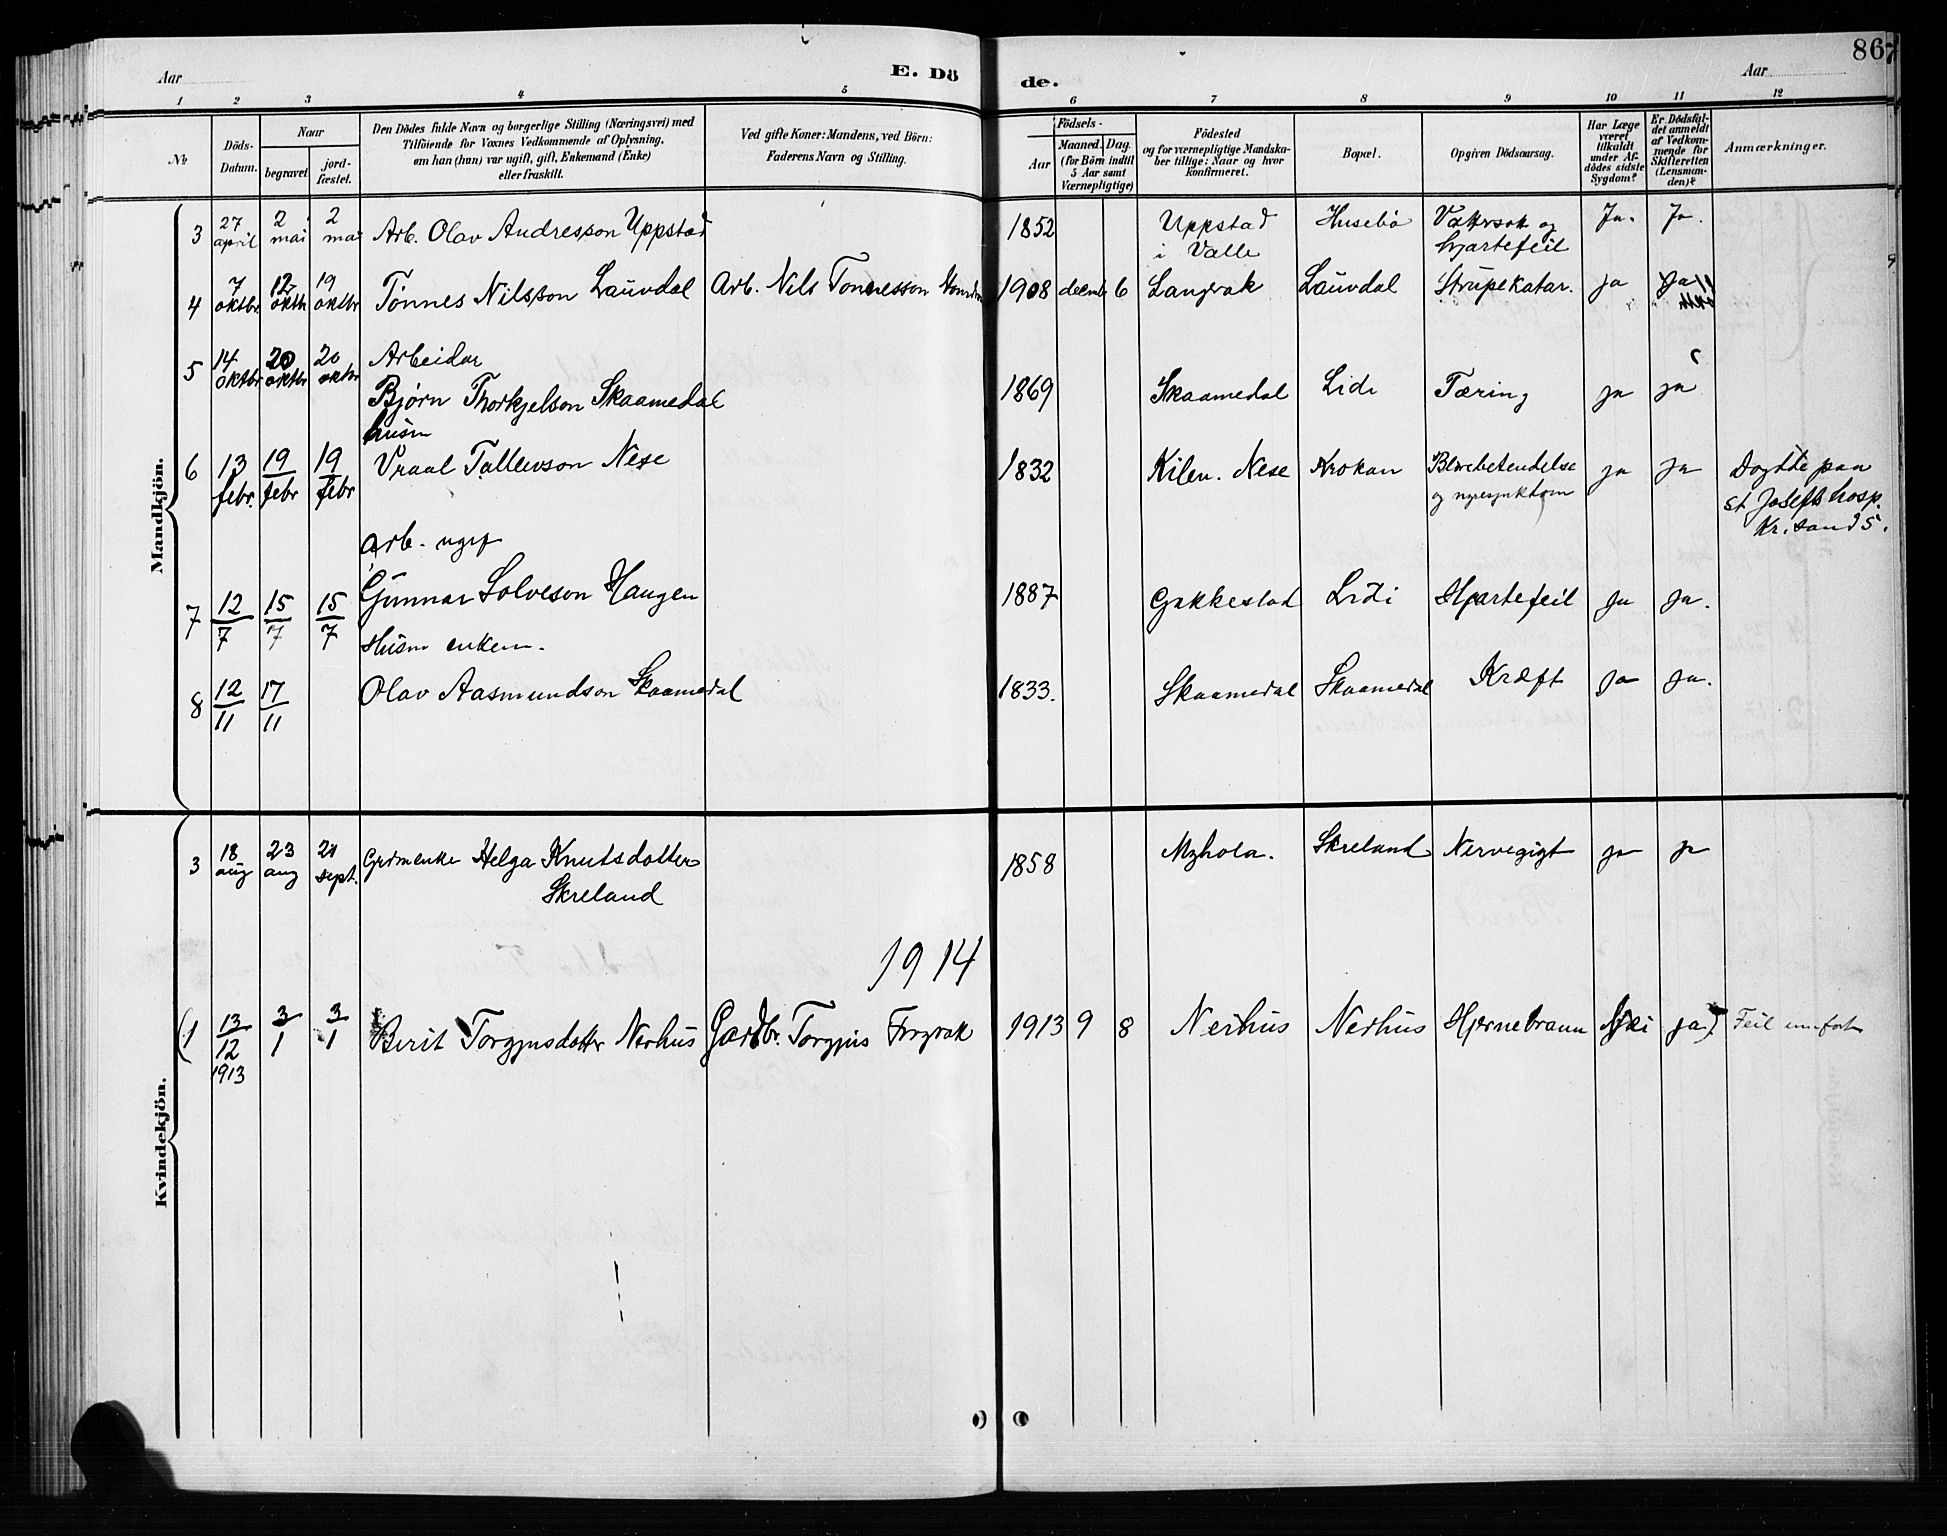 Aar
E. Dö
de.
Aar
867
1 2 3 4 5 6 7 8 9 10 11 12
No
Döds-
Datum.
Naar
begravet
jord-
fæstet.
Den Dödes fulde Navn og borgerlige Stilling (Næringsvei) med
Tilföiende för Voxnes Vedkommende af Oplysning,
om han (hun) var ugift, gift, Enkemand (Enke)
eller fraskilt.
Ved gifte Koner: Mandens, ved Börn:
Faderens Navn og Stilling.
Födsels-
Aar
Maaned. Dag.
(for Börn indtil
5 Aar samt
Værnepligtige)
Födested
og for værnepligtige Mandska-
ber tillige: Naar og hvor
konfirmeret.
Bopæl.
Opgiven Dödsaarsag.
Har Læge
været
tilkaldt
under Af-
dödes sidste
Sygdom?
Er Dödsfal-
det anmeldt
af Vedkom-
mende for
Skifteretten
(Lensman-
den)?
Anmærkninger.
Mandkjön.
3 27 april 2 mai 2 mai Arb. Olav Andresson Uppstad 1852 Uppstad i Valle Husebö Vattersot og hjartefeil Ja. Ja.
4 7 oktbr 12 oktbr 19 oktbr Tönnes Nilsson Lauvdal Arb. Nils Tonnesson 1908 decmb 6 Langerak Lauvdal Strupekatar. ja ja
5 14 oktbr 20 oktbr 20 oktbr Arbeidar
Bjørn Thorkjelson Skaamedal 1869 Skaamedal Lidi Tæring ja ja
husm
6 13 febr. 19/febr 19/febr Vraal Tallevson Nese 1832 Kilen. Nese Krokan Blærebetendelse ja ja Døytte paa
og nyresjukdom st Josefs hosp.
Kr.sand S.
arb. ugif
7 12/7 15/7 15/7 Gunnar Solveson Haugen 1887 Gakkestad Lidi Hjartefeil ja ja.
Husm enkem.
8 12/11 17/11 Olav Aasmundson Skaamedal 1833. Skaamedal Skaamedal Kræft ja ja.
Kvindekjön.
3 18 aug 23 aug 21 sept. Grdmenke Helga Knutsdotter
Skreland 1858 Myhola. Skreland Nervegigt ja ja
1914
(1 13/12 1913 3/1 3/1 Berit Torgjusdotter Nerhus Gardbr. Torgjus 1913 9 8 Nerhus Nerhus Hjernebraun ja) Feil innført